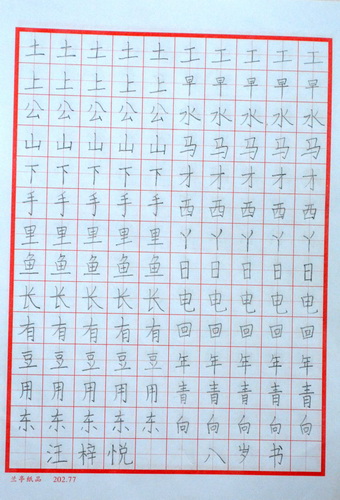 土土土土土工工工工工
上上上上上早早早早早
公公公公公水水水水水
山山山山山马马马马马
下下下下下才才才才才
手手手手手西西西西西
里里里里里丫丫丫丫丫
鱼鱼鱼鱼鱼日日日日日
长长长长长电电电电电
有有有有有回回回回回
豆豆豆豆豆年年年年年
用用用用用青青青青青
东东东东东向向向向向
汪梓悦 八岁书
兰亭纸品 202.77